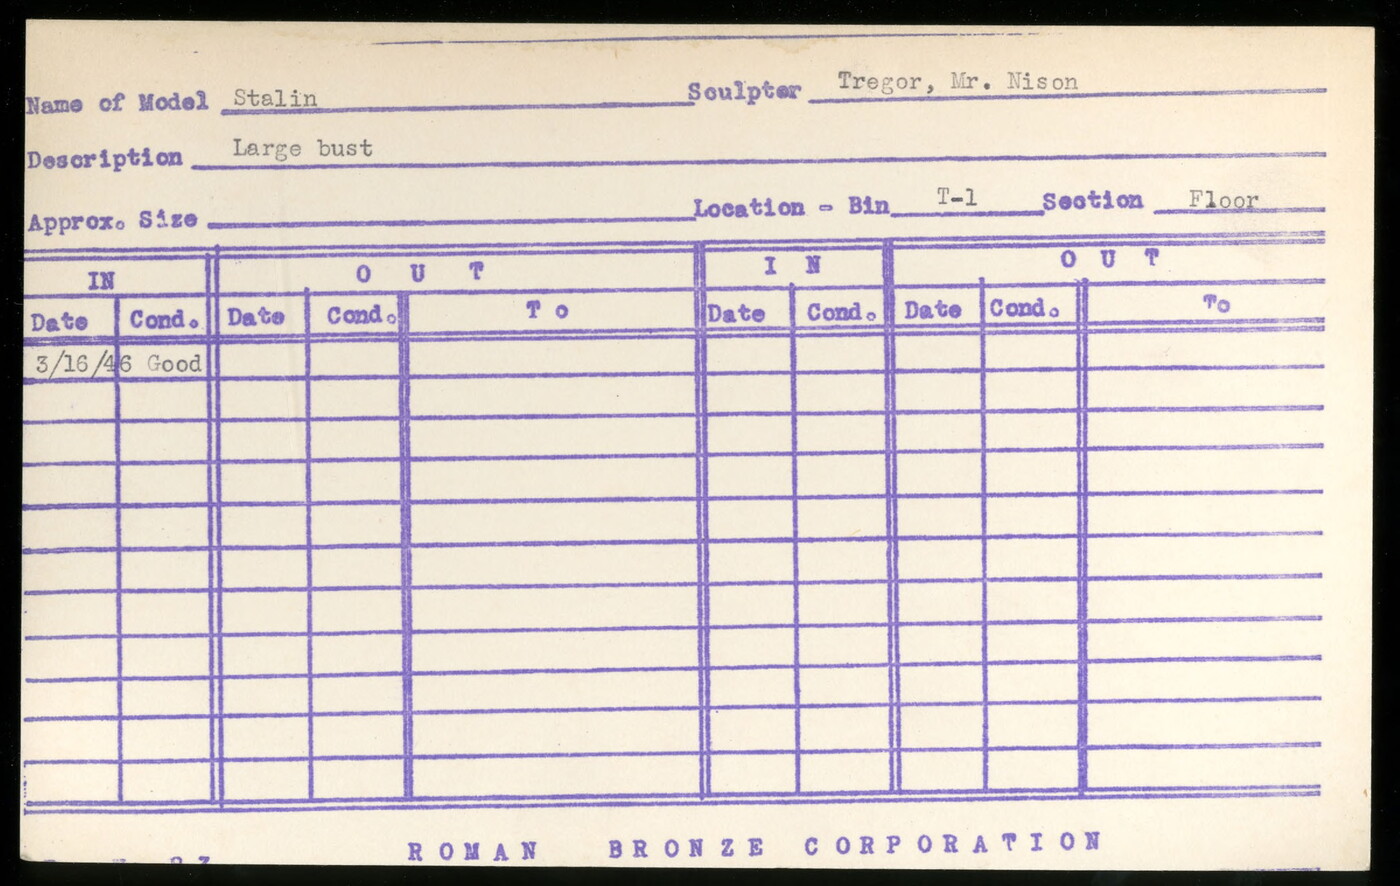 Name of Model Stalin Sculpter Tregor, Mr. Nison
Description Large bust
Approx. Size Location - Bin T-1 Section Floor
IN O U T I N O U T
Date Cond. Date Cond. T o Date Cond. Date Cond. To
3/16/46 Good
ROMAN BRONZE CORPORATION